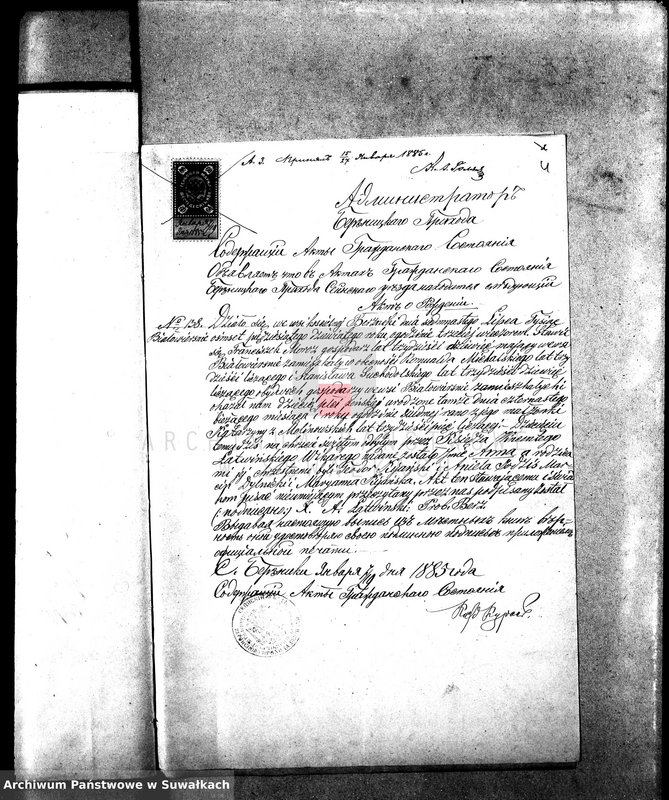 А. 3. Принятъ 15/27 Января 1885 г.
Администраторъ
Бержницкаго Прихода
Содержащій Акты Гражданскаго Состоянія
Объявляетъ что въ Актахъ Гражданскаго Состоянія
Бержницкаго Прихода Сейнскаго уѣзда находится слѣдующій
Актъ о Рожденіи.
№ 138. Działo się we wsi kościelnej Bereźniki dnia siedmnastego Lipca tysiąc
Białowierśnie ośmset pięćdziesiątego dziewiątego roku o godzinie trzeciej
się Franciszek Moroz gospodarz lat trzydzieści dziewięć mający we wsi
Białowierśni zamieszkały w obecności Romualda Michalskiego lat trzy
dzieści liczącego i Stanisława Swobodolskiego lat trzydzieści dziewięć
liczącego obydwóch gospodarzy we wsi Białowierśni zamieszkałych i
okazał nam dziecię płci żeńskiej urodzone tamże dnia czternastego
bieżącego miesiąca i roku o godzinie siódmej rano z jego małżonki
Katarzyny z Molinowskich lat trzydzieści pięć liczącej. Dziecięciu
temu dziś na chrzcie świętym odbytym przez Księdza Wincentego
Łatwińskiego Wikarego nadane zostało imie Anna a rodzicami
mi jej chrzestnemi byli Teodor i Aniela
i Maryanna. Akt ten stawającemu i świad
kom pisać nieumiejącym przeczytany przez nas podpisany został
(podpisano) X. A. Łatwiński: Prob. Berż
Выдавая настоящую выпись изъ мѣстныхъ книгъ вѣр-
ность оной удостовѣряю своею подписью съ приложеніемъ
оффиціальной печати.
С. Бержники Января дня 1885 года
Содержащій Акты Гражданскаго Состоянія
ARCH
Archiwum Państwowe w Suwałkach